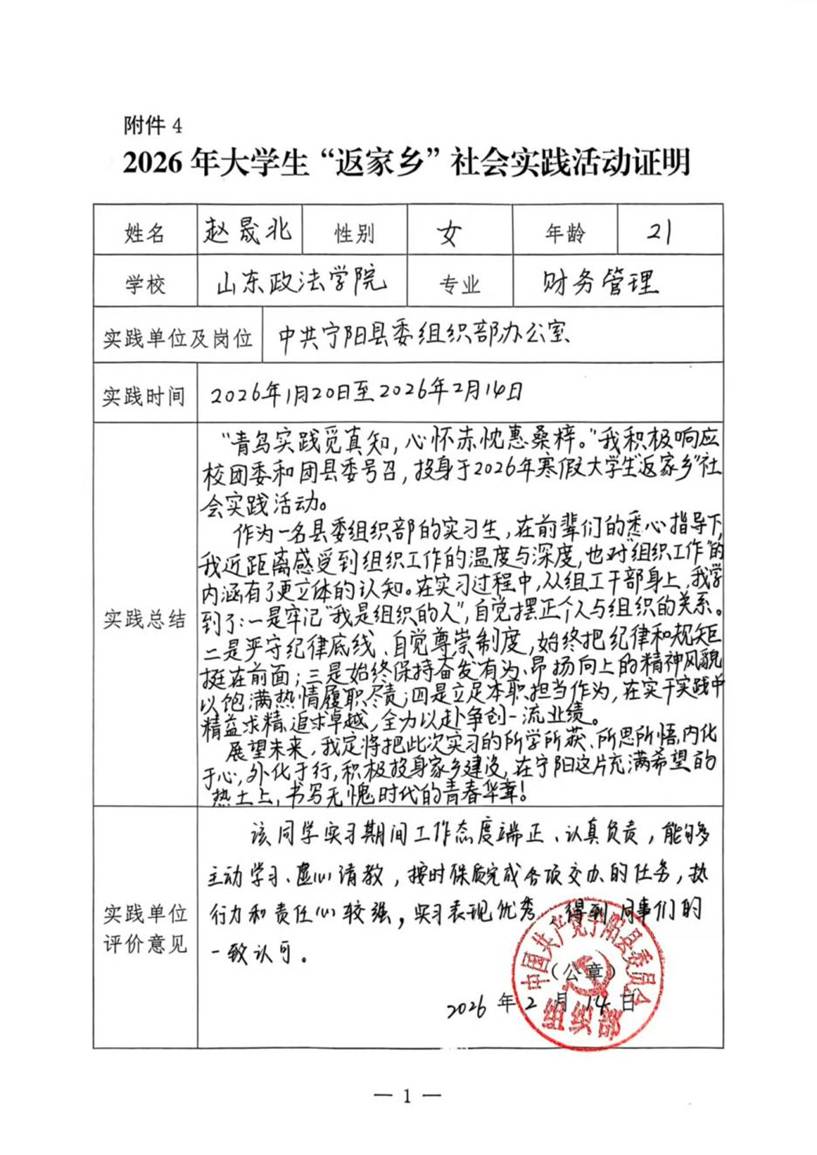 附件 4
2026 年大学生“返家乡”社会实践活动证明
姓名 赵晟北 性别 女 年龄 21
学校 山东政法学院 专业 财务管理
实践单位及岗位 中共宁阳县委组织部办公室
实践时间 2026年1月20日至2026年2月14日
实践总结
“青鸟实践觅真知，心怀赤忱惠桑梓。”我积极响应
校团委和团县委号召，投身于2026年寒假大学生“返家乡”社
会实践活动。
作为一名县委组织部的实习生，在前辈们的悉心指导下，
我近距离感受到组织工作的温度与深度，也对“组织工作”的
内涵有了更立体的认知。在实习过程中，从组工干部身上，我学
到了：一是牢记“我是组织的人”，自觉摆正个人与组织的关系。
二是严守纪律底线、自觉尊崇制度，始终把纪律和规矩
挺在前面；三是始终保持奋发有为、昂扬向上的精神风貌
以饱满热情履职尽责；四是立足本职担当作为，在实干实践中
精益求精、追求卓越，全力以赴争创一流业绩。
展望未来，我定将把此次实习的所学所获、所思所悟，内化
于心，外化于行，积极投身家乡建设，在宁阳这片充满希望的
热土上，书写无愧时代的青春华章！
实践单位
评价意见
该同学实习期间工作态度端正、认真负责，能够
主动学习、虚心请教，按时保质完成各项交办的任务，执
行力和责任心较强，实习表现优秀，得到同事们的
一致认可。
（公章）
2026 年 2 月 14 日
中国共产党宁阳县委员会
组织部
— 1 —